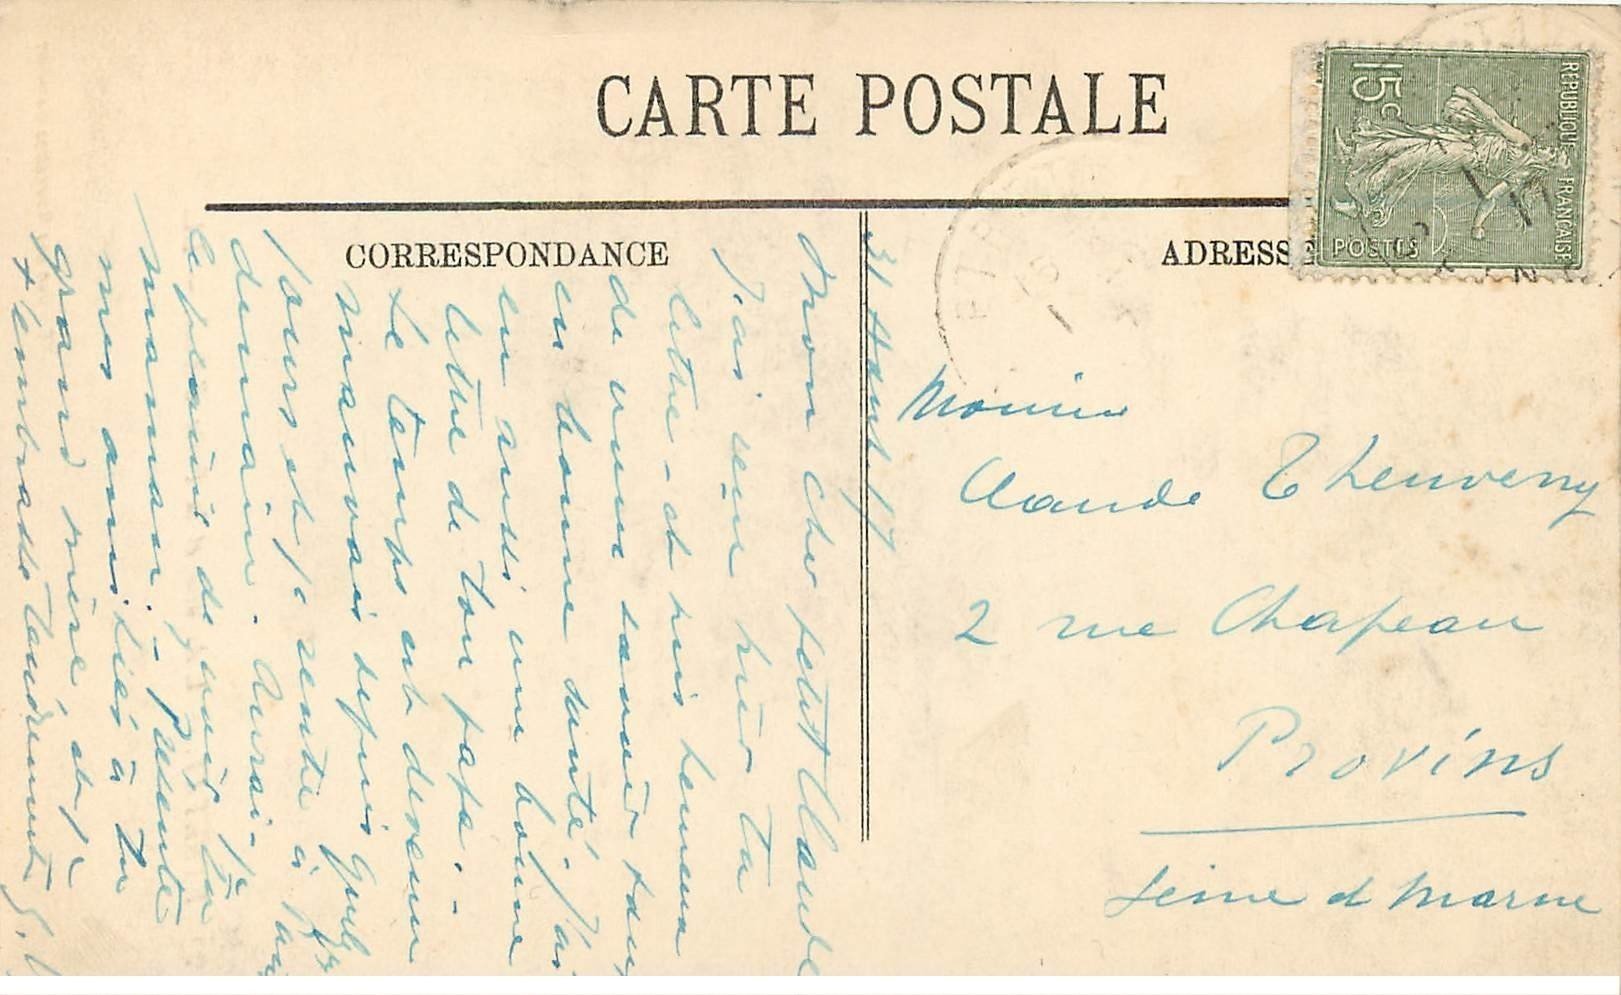 CARTE POSTALE
CORRESPONDANCE
ADRESSE
REPUBLIQUE FRANCAISE
15c
POSTES
31 Août 17
Mon cher petit Claude
J'ai reçu hier ta
lettre - et suis heureux
de vous savoir tous
en bonne santé. J'ai
eu aussi une bonne
lettre de ton papa. -
Le temps est devenu
mauvais depuis quelqs
jours et je rentre à
demain. Aurai-
le plaisir de
maman. - Présente
mes amitiés à ta
grand mère et je
t'embrasse tendrement
Monsieur
Claude Thenveny
2 rue Chapeau
Provins
Seine et Marne